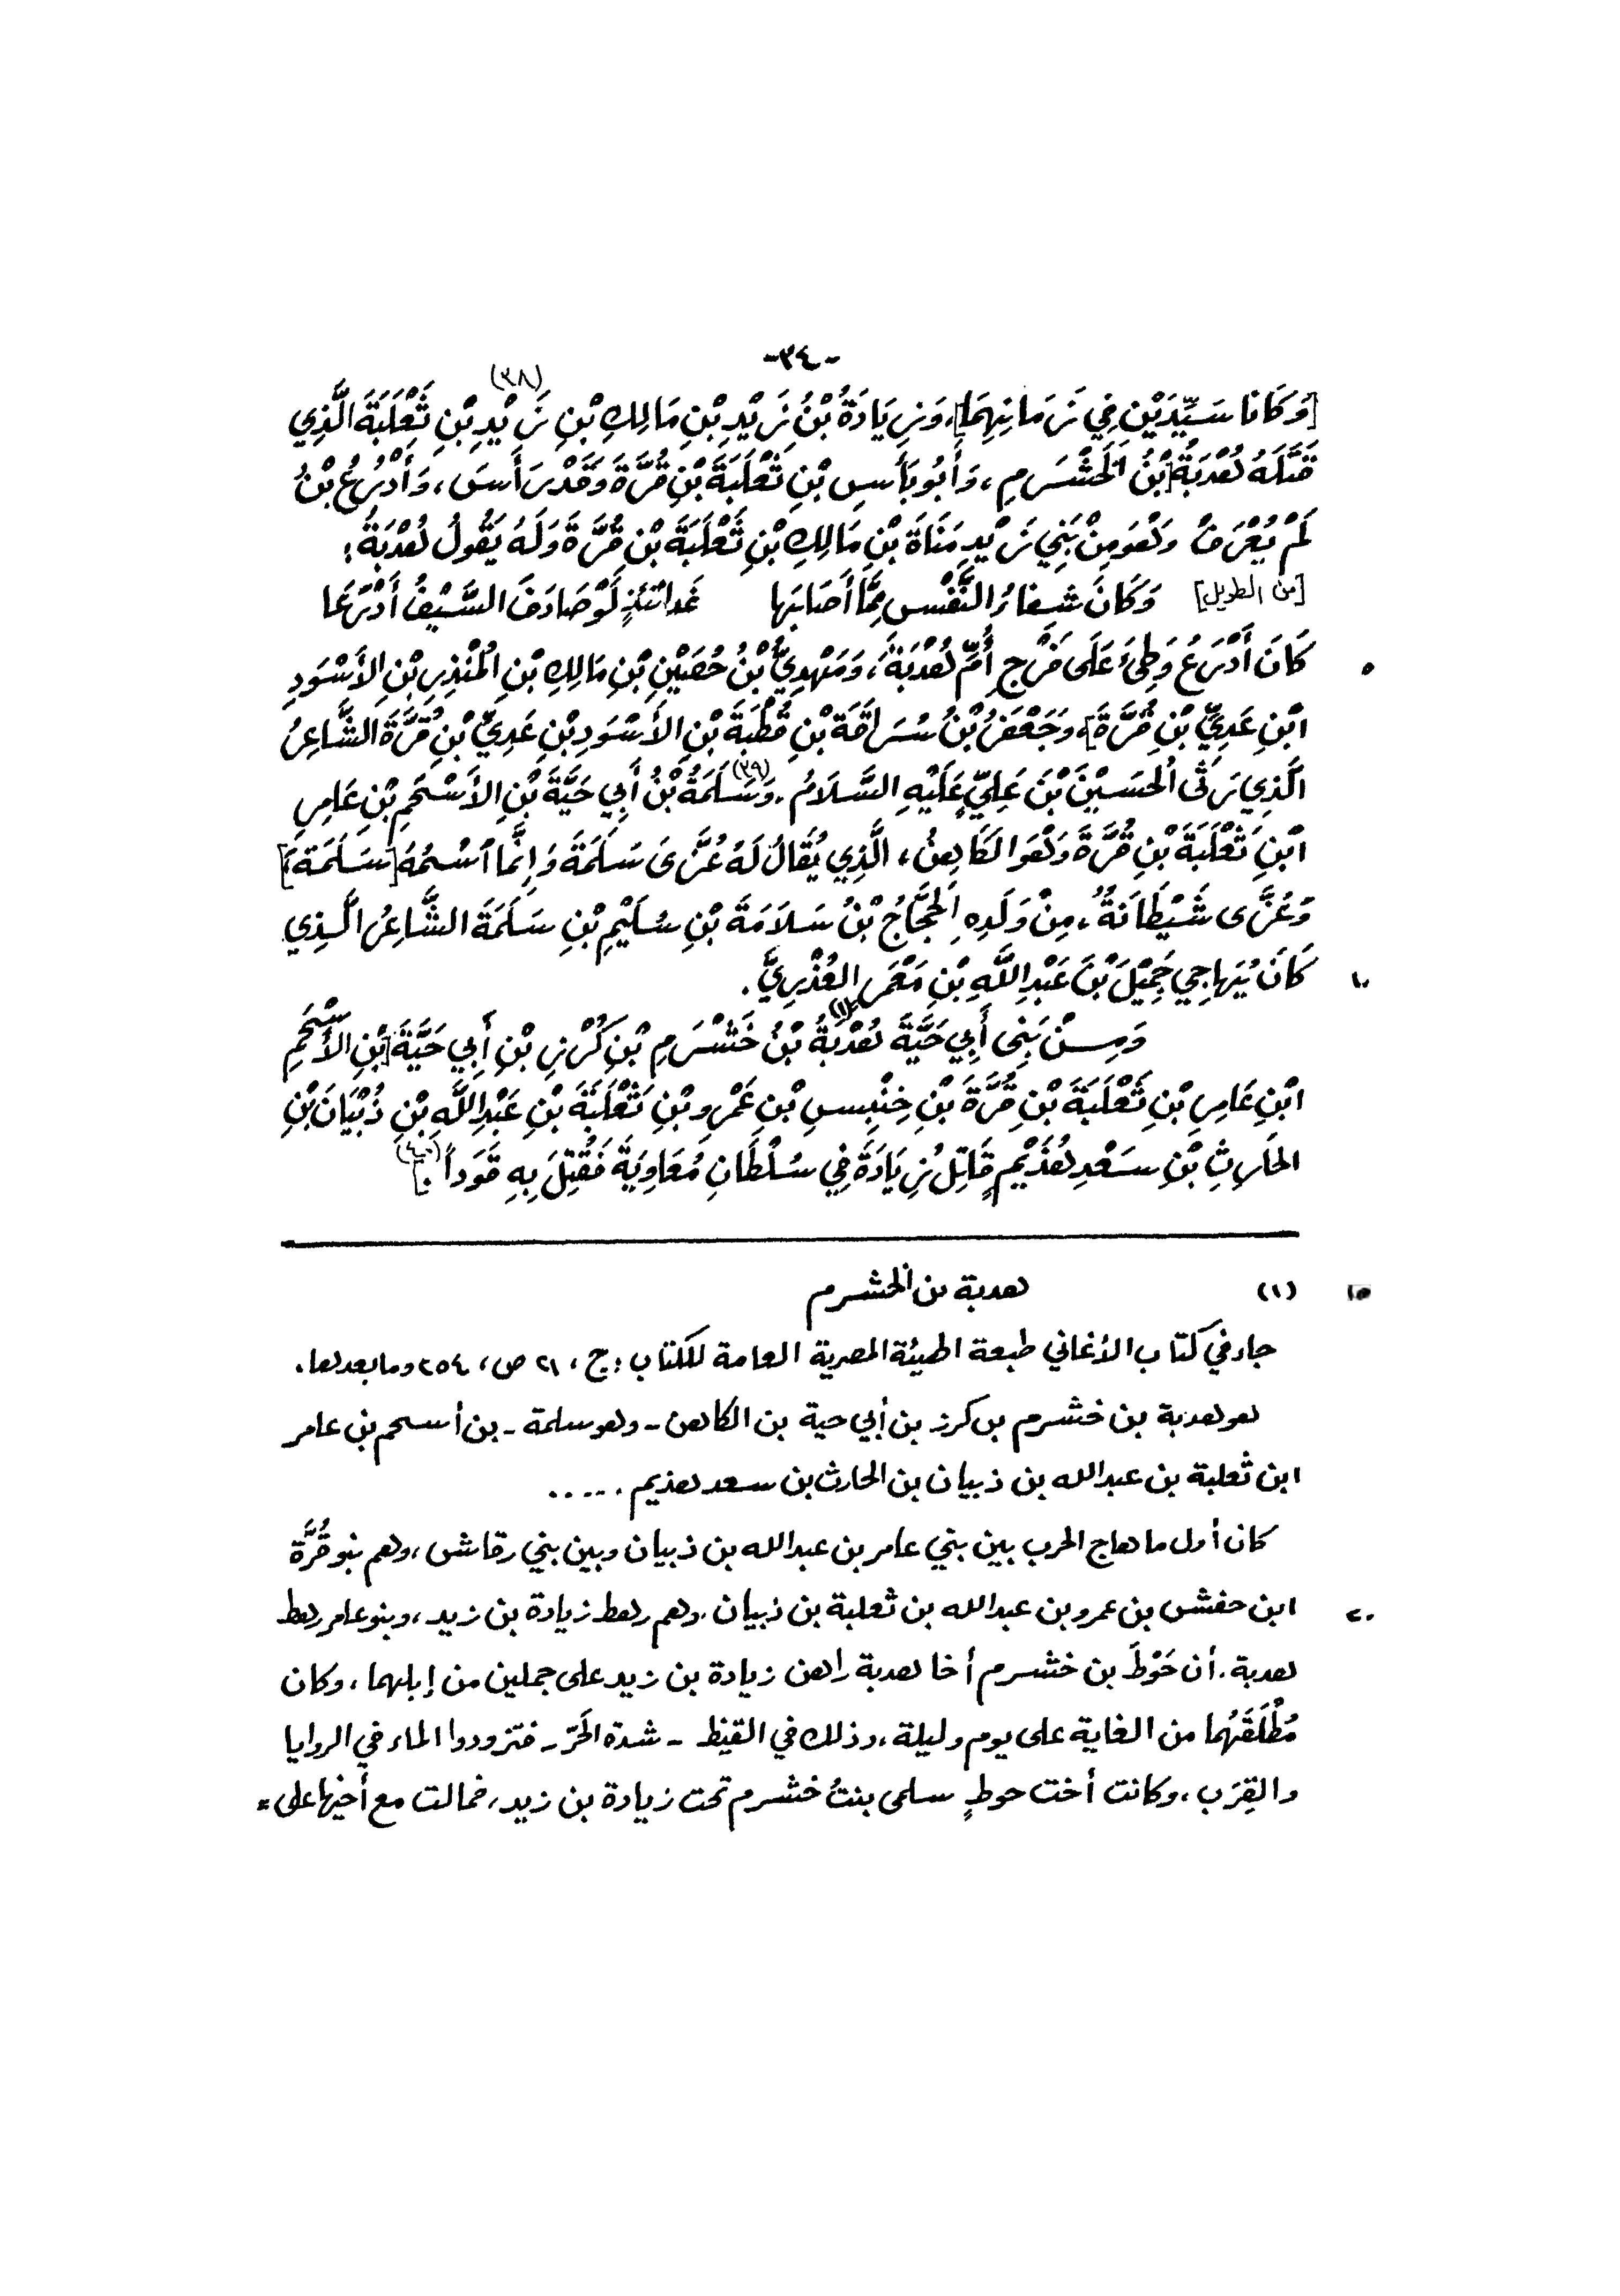 -٣٤-
[وَكَانَا سَيِّدَيْنِ فِي زَمانِهِمَا]، وَزِيَادَةُ بْنُ زَيْدِ بْنِ مَالِكِ بْنِ زَيْدِ بْنِ ثَعْلَبَةَ (٣٨) الَّذِي
قَتَلَهُ هُدْبَةُ [بْنُ الخَشْرَمِ، وَأَبُو بَأسِ بْنِ ثَعْلَبَةَ بْنِ قُرَّةَ وَقَدْ رَأَسَ، وَأَدْرُعُ بْنُ
لَمْ يُعْرَفْ وَهُوَ مِنْ بَنِي زَيْدِ مَنَاةَ بْنِ مَالِكِ بْنِ ثَعْلَبَةَ بْنِ قُرَّةَ وَلَهُ يَقُولُ هُدْبَةُ:
[من الطويل] وَكَانَ شِفاءُ النَّفْسِ مِمَّا أَصَابَها غَداتَئِذٍ لَوْ صَادَفَ السَّيْفُ أَدْرَعَا
٥ كَانَ أَدْرَعُ وَطِئَ عَلَى فَرْجِ أُمِّ هُدْبَةَ، وَمَهْدِيُّ بْنُ حُصَيْنِ بْنِ مَالِكِ بْنِ المُنْذِرِ بْنِ الأَسْوَدِ
ابْنِ عَدِيِّ بْنِ قُرَّةَ]، وَجَعْفَرُ بْنُ سُرَاقَةَ بْنِ قُطْبَةَ بْنِ الأَسْوَدِ بْنِ عَدِيِّ بْنِ قُرَّةَ الشَّاعِرُ
الَّذِي رَثَى الحُسَيْنَ بْنَ عَلِيٍّ عَلَيْهِ السَّلَامُ. (٣٩) وَسَلَمَةُ بْنُ أَبِي حَيَّةَ بْنِ الأَسْحَمِ بْنِ عَامِرِ
ابْنِ ثَعْلَبَةَ بْنِ قُرَّةَ وَهُوَ الكَاهِنُ، الَّذِي يُقَالُ لَهُ عُزَّى سَلَمَةَ وَإِنَّمَا اسْمُهُ [سَلَمَةُ]
وَعُزَّى شَيْطَانَةُ، مِنْ وَلَدِهِ الحَجَّاجُ بْنُ سَلَامَةَ بْنِ سُلَيْمِ بْنِ سَلَمَةَ الشَّاعِرُ الَّذِي
١٠ كَانَ يُهَاجِي جَمِيْلَ بْنَ عَبْدِ اللَّهِ بْنِ مَعْمَرِ العُذْرِيَّ.
وَمِنْ بَنِي أَبِي حَيَّةَ هُدْبَةُ (١) بْنُ خَشْرَمِ بْنِ كُرْزِ بْنِ أَبِي حَيَّةَ [بْنِ الأَسْحَمِ
ابْنِ عَامِرِ بْنِ ثَعْلَبَةَ بْنِ قُرَّةَ بْنِ خِنْبِسِ بْنِ عَمْرِو بْنِ ثَعْلَبَةَ بْنِ عَبْدِ اللَّهِ بْنِ ذُبْيَانَ بْنِ
الحَارِثِ بْنِ سَعْدِ هُذَيْمٍ قَاتِلُ زِيَادَةَ فِي سُلْطَانِ مُعَاوِيَةَ فَقُتِلَ بِهِ قَوَداً (٤٠).]
١٥ (١) هدبة بن الخشرم
جاء في كتاب الأغاني طبعة الهيئة المصرية العامة للكتاب: ج، ٢١ ص، ٢٥٤ وما بعدها.
هو هدبة بن خشرم بن كرز بن أبي حية بن الكاهن - وهو سلمة - بن أسحم بن عامر
ابن ثعلبة بن عبدالله بن ذبيان بن الحارث بن سعد هذيم .....
كان أول ما هاج الحرب بين بني عامر بن عبدالله بن ذبيان وبين بني رقاش، وهم بنو قُرَّة
٢٠ ابن حفش بن عمرو بن عبدالله بن ثعلبة بن ذبيان، وهم رهط زيادة بن زيد، وبنو عامر رهط
هدبة. أن حَوْطَ بن خشرم أخا هدبة راهن زيادة بن زيد على جملين من إبلهما، وكان
مُطْلَقَهُما من الغاية على يوم وليلة، وذلك في القيظ - شدة الحَرّ - فتزودوا الماء في الروايا
والقِرَب، وكانت أخت حوطٍ سلمى بنتُ خشرم تحت زيادة بن زيد، فمالت مع أخيها على =